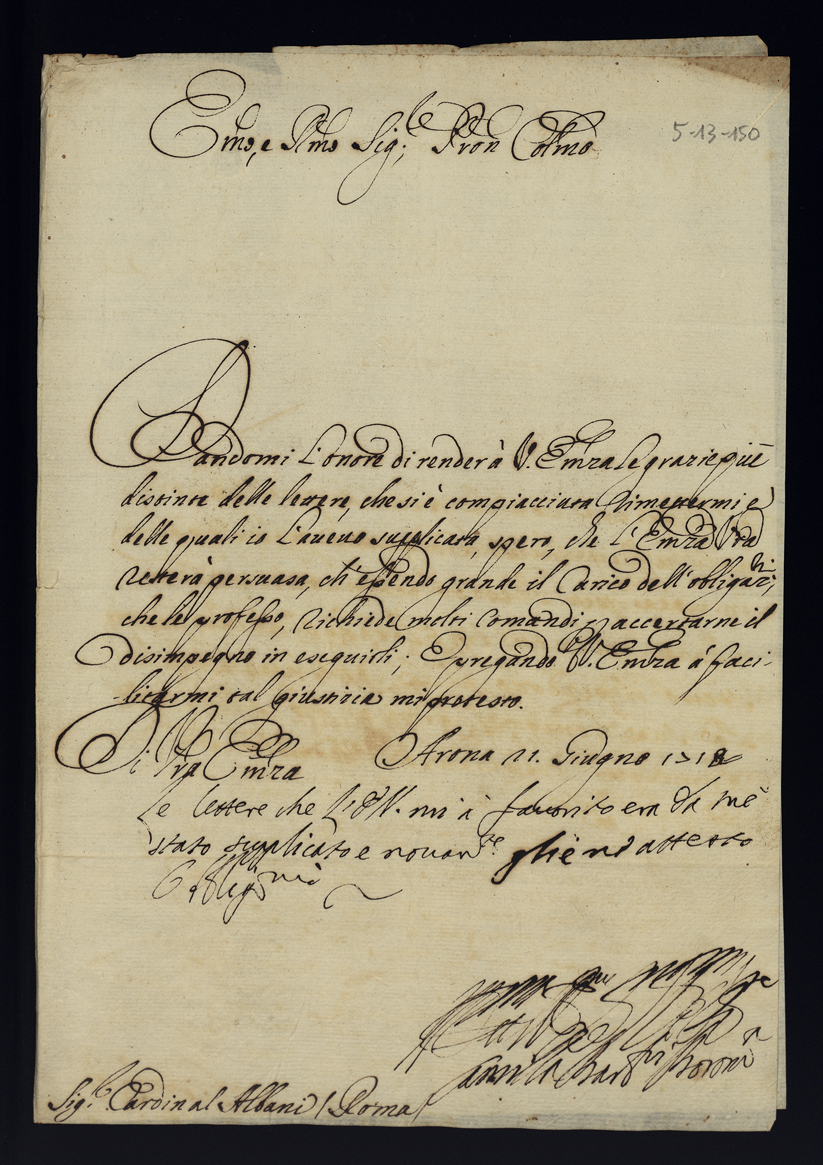 Emo, e Rmo Sig.re Pron Colmo
5-13-150
Dandomi l'onore di render à V. Emza le grazie più
distinte delle lettere, che si è compiacciuta rimettermi e
delle quali io l'aveuo supplicata, spero, che l'Emza Vra
resterà persuasa, ch'essendo grande il carico dell'obligazni,
che le professo, richiede molti comandi p accertarne il
disimpegno in eseguirli; E pregando V. Emza à faci-
litarmi tal giustizia mi protesto.
Di Vra Emza Arona 21. Giugno 1718
Le lettere che l'E V. mi à fauorito era da me
stato supplicato e nouamte glie ne attesto

Camilla Barbni Boromeo
Sig.r Cardinal Albani / Roma